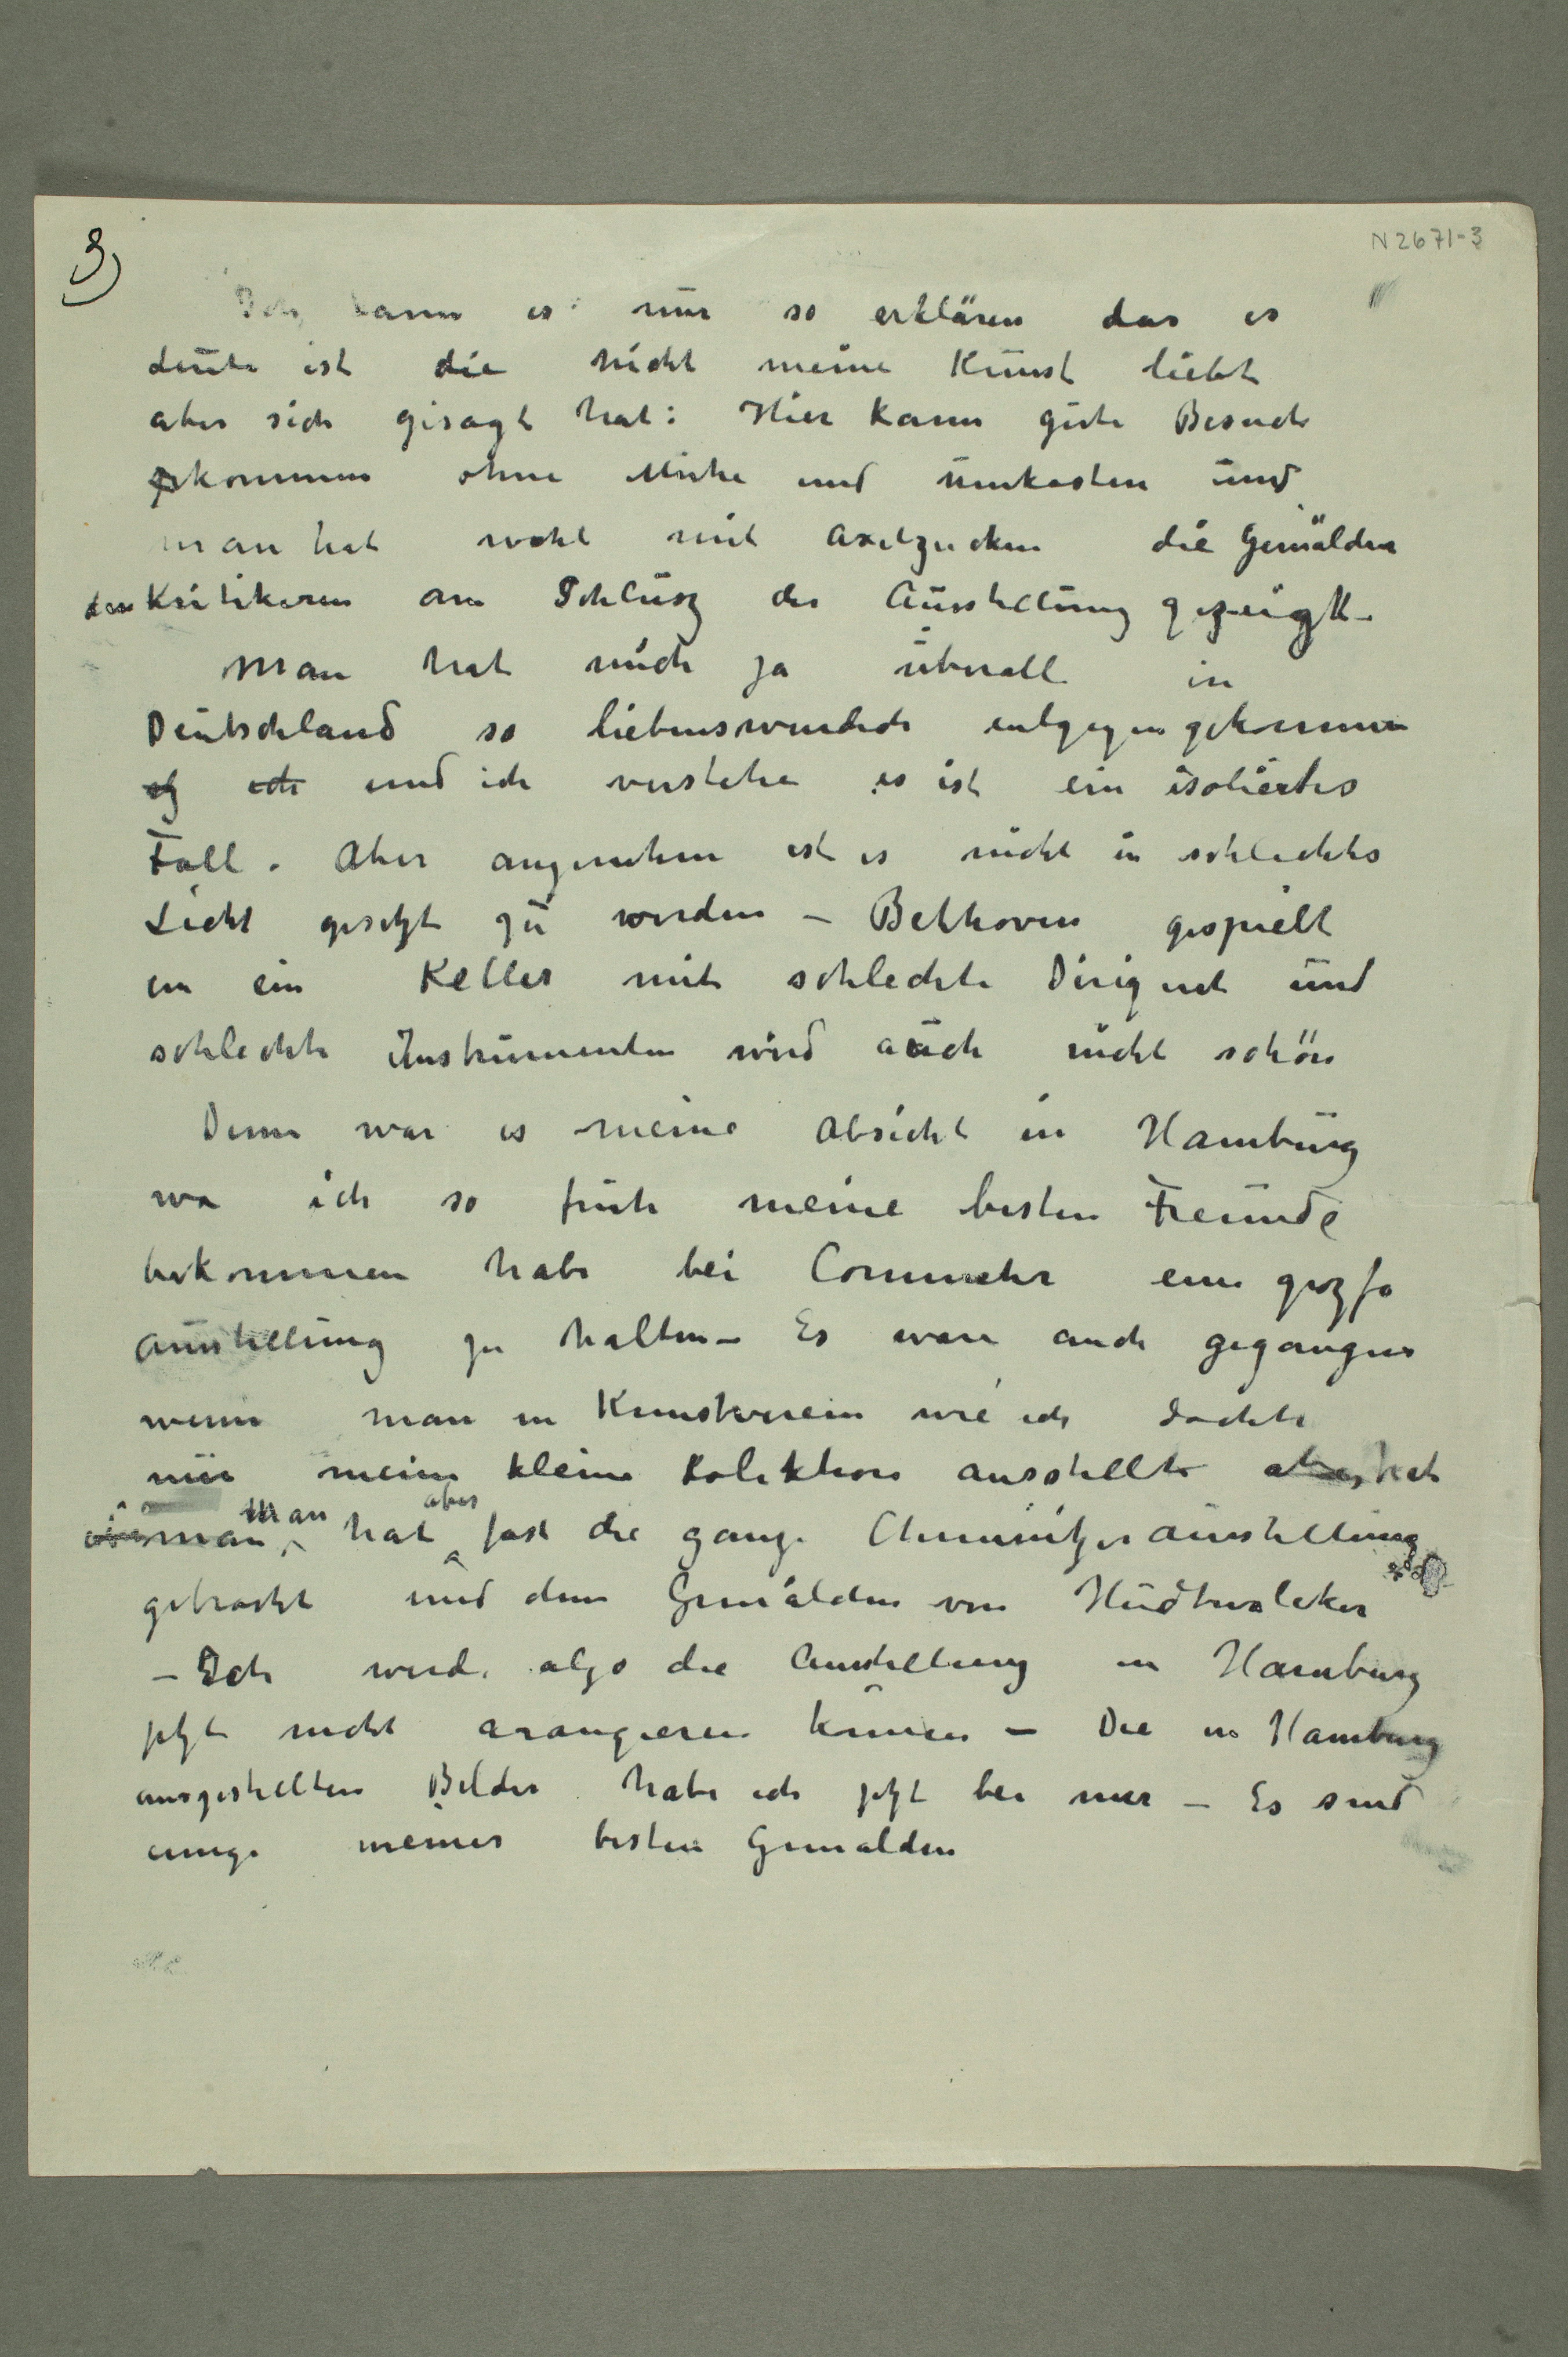 3)
N 2671-3
Ich kann es nur so erklären das es
Leute ist die nicht meine Kunst liebt
aber sich gesagt hat: Hier kann gute Besuch
kommen ohne Mühe und Unkosten und
man hat wohl mit Axelzucken die Gemälden
den Kritikeren am Schlusz der Ausstellung gezeigt –
Man hat mich ja überall in
Deutschland so liebenswurdich entgegengekommen
ich und ich verstehe es ist ein isoliertes
Fall. Aber angenehm ist es nicht in schlechtes
Licht gesetzt zu werden – Bethoven gespielt
in ein Keller mit schlechte Dirigent und
schlechte Instrumenten wird auch nicht schön
Denn war es meine Absicht in Hamburg
wo ich so früh meine besten Freunde
bekommen habe bei Commeter eine grozse
Ausstellung zu halten – Es ware auch gegangen
wenn man in Kunstverein wie ich dachte
nur meine kleine Kolektion ausstellte aber hat
man man hat aber fast die ganze Chemnitzer Ausstellung
gebracht und denn Gemälden von Hudtwalcker
– Ich werde also die Ausstellung in Hamburg
jetzt nicht arangieren können – Die in Hamburg
ausgestellten Bilder habe ich jetzt bei mir – Es sind
einige meiner besten Gemalden